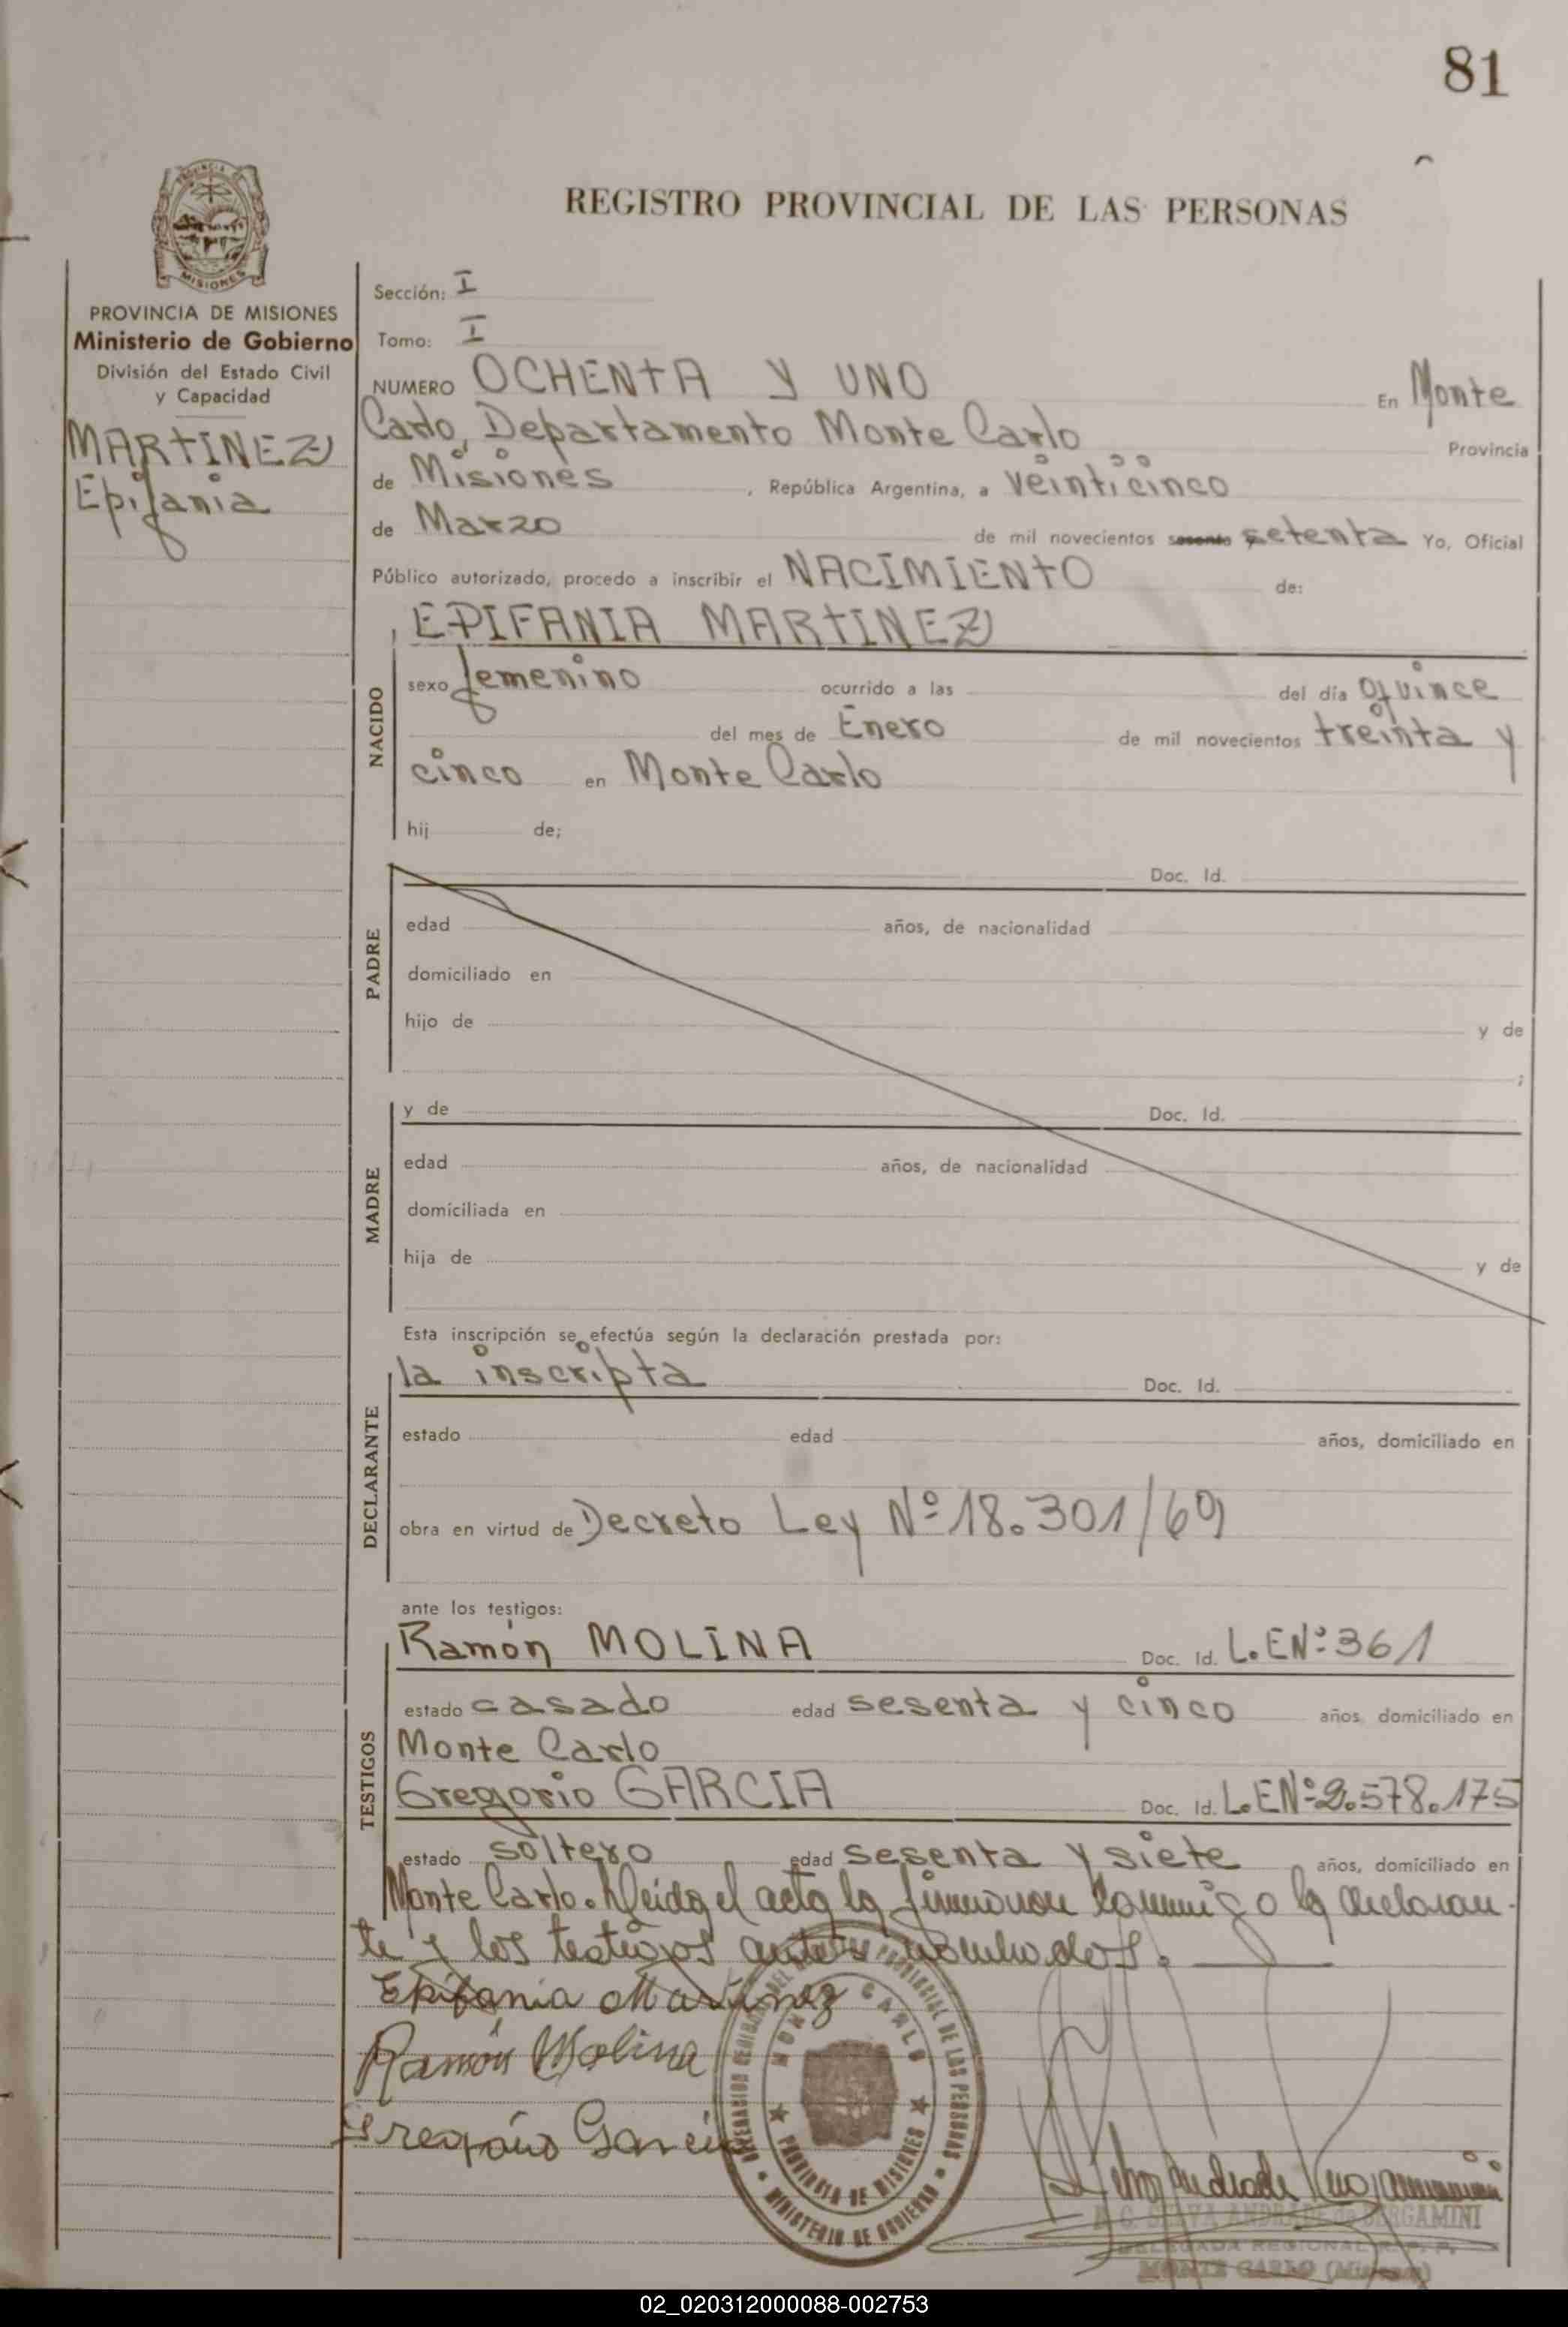 81
PROVINCIA DE
MISIONES
REGISTRO PROVINCIAL DE LAS PERSONAS
PROVINCIA DE MISIONES
Ministerio de Gobierno
División del Estado Civil
y Capacidad
MARTINEZ
Epifania
Sección: I
Tomo: I
NUMERO OCHENTA Y UNO En Monte
Carlo, Departamento Monte Carlo Provincia
de Misiones, República Argentina, a veinticinco
de Marzo de mil novecientos sesenta setenta Yo, Oficial
Público autorizado, procedo a inscribir el NACIMIENTO de:
EPIFANIA MARTINEZ
NACIDO
sexo femenino ocurrido a las del día quince
del mes de Enero de mil novecientos treinta y
cinco en Monte Carlo
hij de;
PADRE
Doc. Id.
edad años, de nacionalidad
domiciliado en
hijo de y de
;
MADRE
y de Doc. Id.
edad años, de nacionalidad
domiciliada en
hija de y de
Esta inscripción se efectúa según la declaración prestada por:
DECLARANTE
la inscripta Doc. Id.
estado edad años, domiciliado en
obra en virtud de Decreto Ley Nº 18.301/69
ante los testigos:
TESTIGOS
Ramón MOLINA Doc. Id. L.ENº 361
estado casado edad sesenta y cinco años, domiciliado en
Monte Carlo
Gregorio GARCIA Doc. Id. L.ENº 2.578.175
estado soltero edad sesenta y siete años, domiciliado en
Monte Carlo. Leida el acta la firmaron conmigo la declaran-
te y los testigos antes nombrados.
Epifania Martinez
Ramón Molina
Gregorio Garcia
PROVINCIAL DE LAS PERSONAS
MONTE CARLO
PROVINCIA DE MISIONES
MINISTERIO DE GOBIERNO
SILVA ANDRADE de BERGAMINI
DELEGADA REGIONAL R. P. P.
MONTE CARLO (Misiones)
02_020312000088-002753